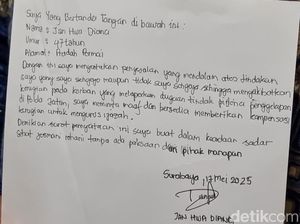 Saya Yang Bertanda Tangan di bawah ini :
Nama : Jan Hwa Diana
Umur : 47 tahun
Alamat : Pradah Permai
Dengan ini saya menyatakan penyesalan yang mendalam atas tindakan
saya yang saya sengaja maupun tidak saya sengaja sehingga mengakibatkan
kerugian pada korban yang melaporkan dugaan tindak pidana penggelapan
di Polda Jatim, saya meminta maaf dan bersedia memberikan kompensasi
kerugian untuk mengurus ijazah.
Demikian surat pernyataan ini saya buat dalam keadaan sadar
sehat jasmani rohani tanpa ada paksaan dari pihak manapun
Surabaya, 17 Mei 2025
JAN HWA DIANA
detikcom